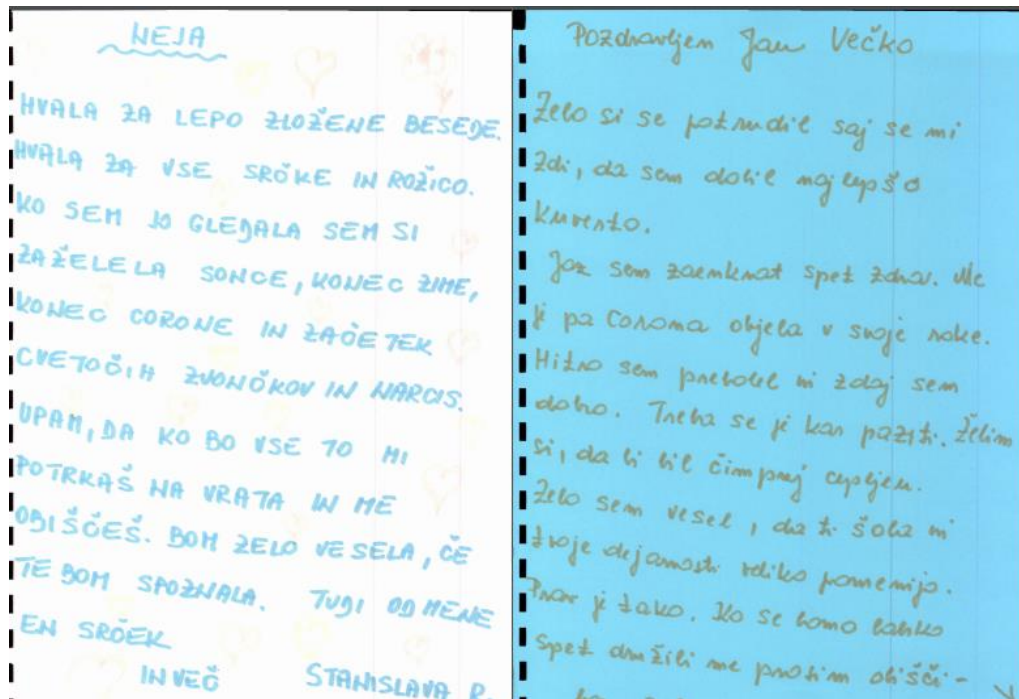 NEJA
HVALA ZA LEPO ZLOŽENE BESEDE.
HVALA ZA VSE SRČKE IN ROŽICO.
KO SEM JO GLEDALA SEM SI
ZAŽELELA SONCE, KONEC ZIME,
KONEC CORONE IN ZAČETEK
CVETOČIH ZVONČKOV IN NARCIS.
UPAM, DA KO BO VSE TO MI
POTRKAŠ NA VRATA IN ME
OBIŠČEŠ. BOM ZELO VESELA, ČE
TE BOM SPOZNALA. TUDI OD MENE
EN SRČEK
IN VEČ STANISLAVA R.
Pozdravljen Jan Večko
Zelo si se potrudil saj se mi
zdi, da sem dobil najlepšo
kuverto.
Jaz sem zaenkrat spet zdrav. Me
je pa Corona objela v svoje roke.
Hitro sem prebolel in zdaj sem
dobro. Treba se je kar paziti. Želim
si, da bi bil čimprej cepljen.
Zelo sem vesel, da ti šola in
tvoje dejavnosti veliko pomenijo.
Prav je tako. Ko se bomo lahko
spet družili me prosim obišči-